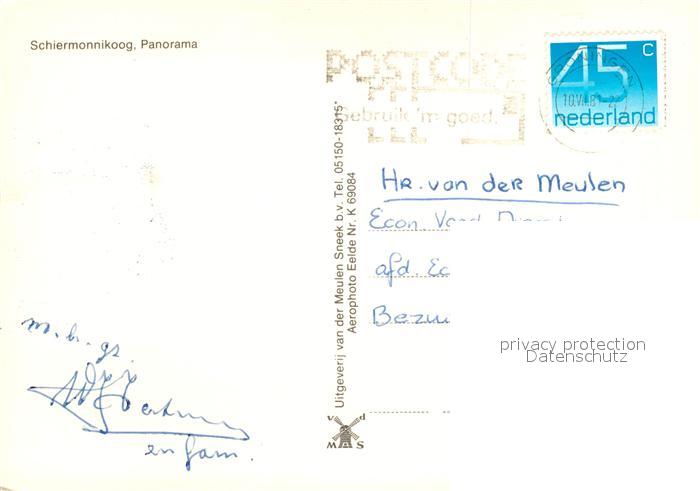 Schiermonnikoog, Panorama
POSTCODE
Gebruik 'm goed.
45 c
nederland
10.VI.81
Uitgeverij van der Meulen Sneek b.v. Tel. 05150-18315*
Aerophoto Eelde Nr. K 69084
Hr. van der Meulen
Econ.
afd. Ec
Bezui
privacy protection
Datenschutz
m. h. gr.
en fam.
v d
M S